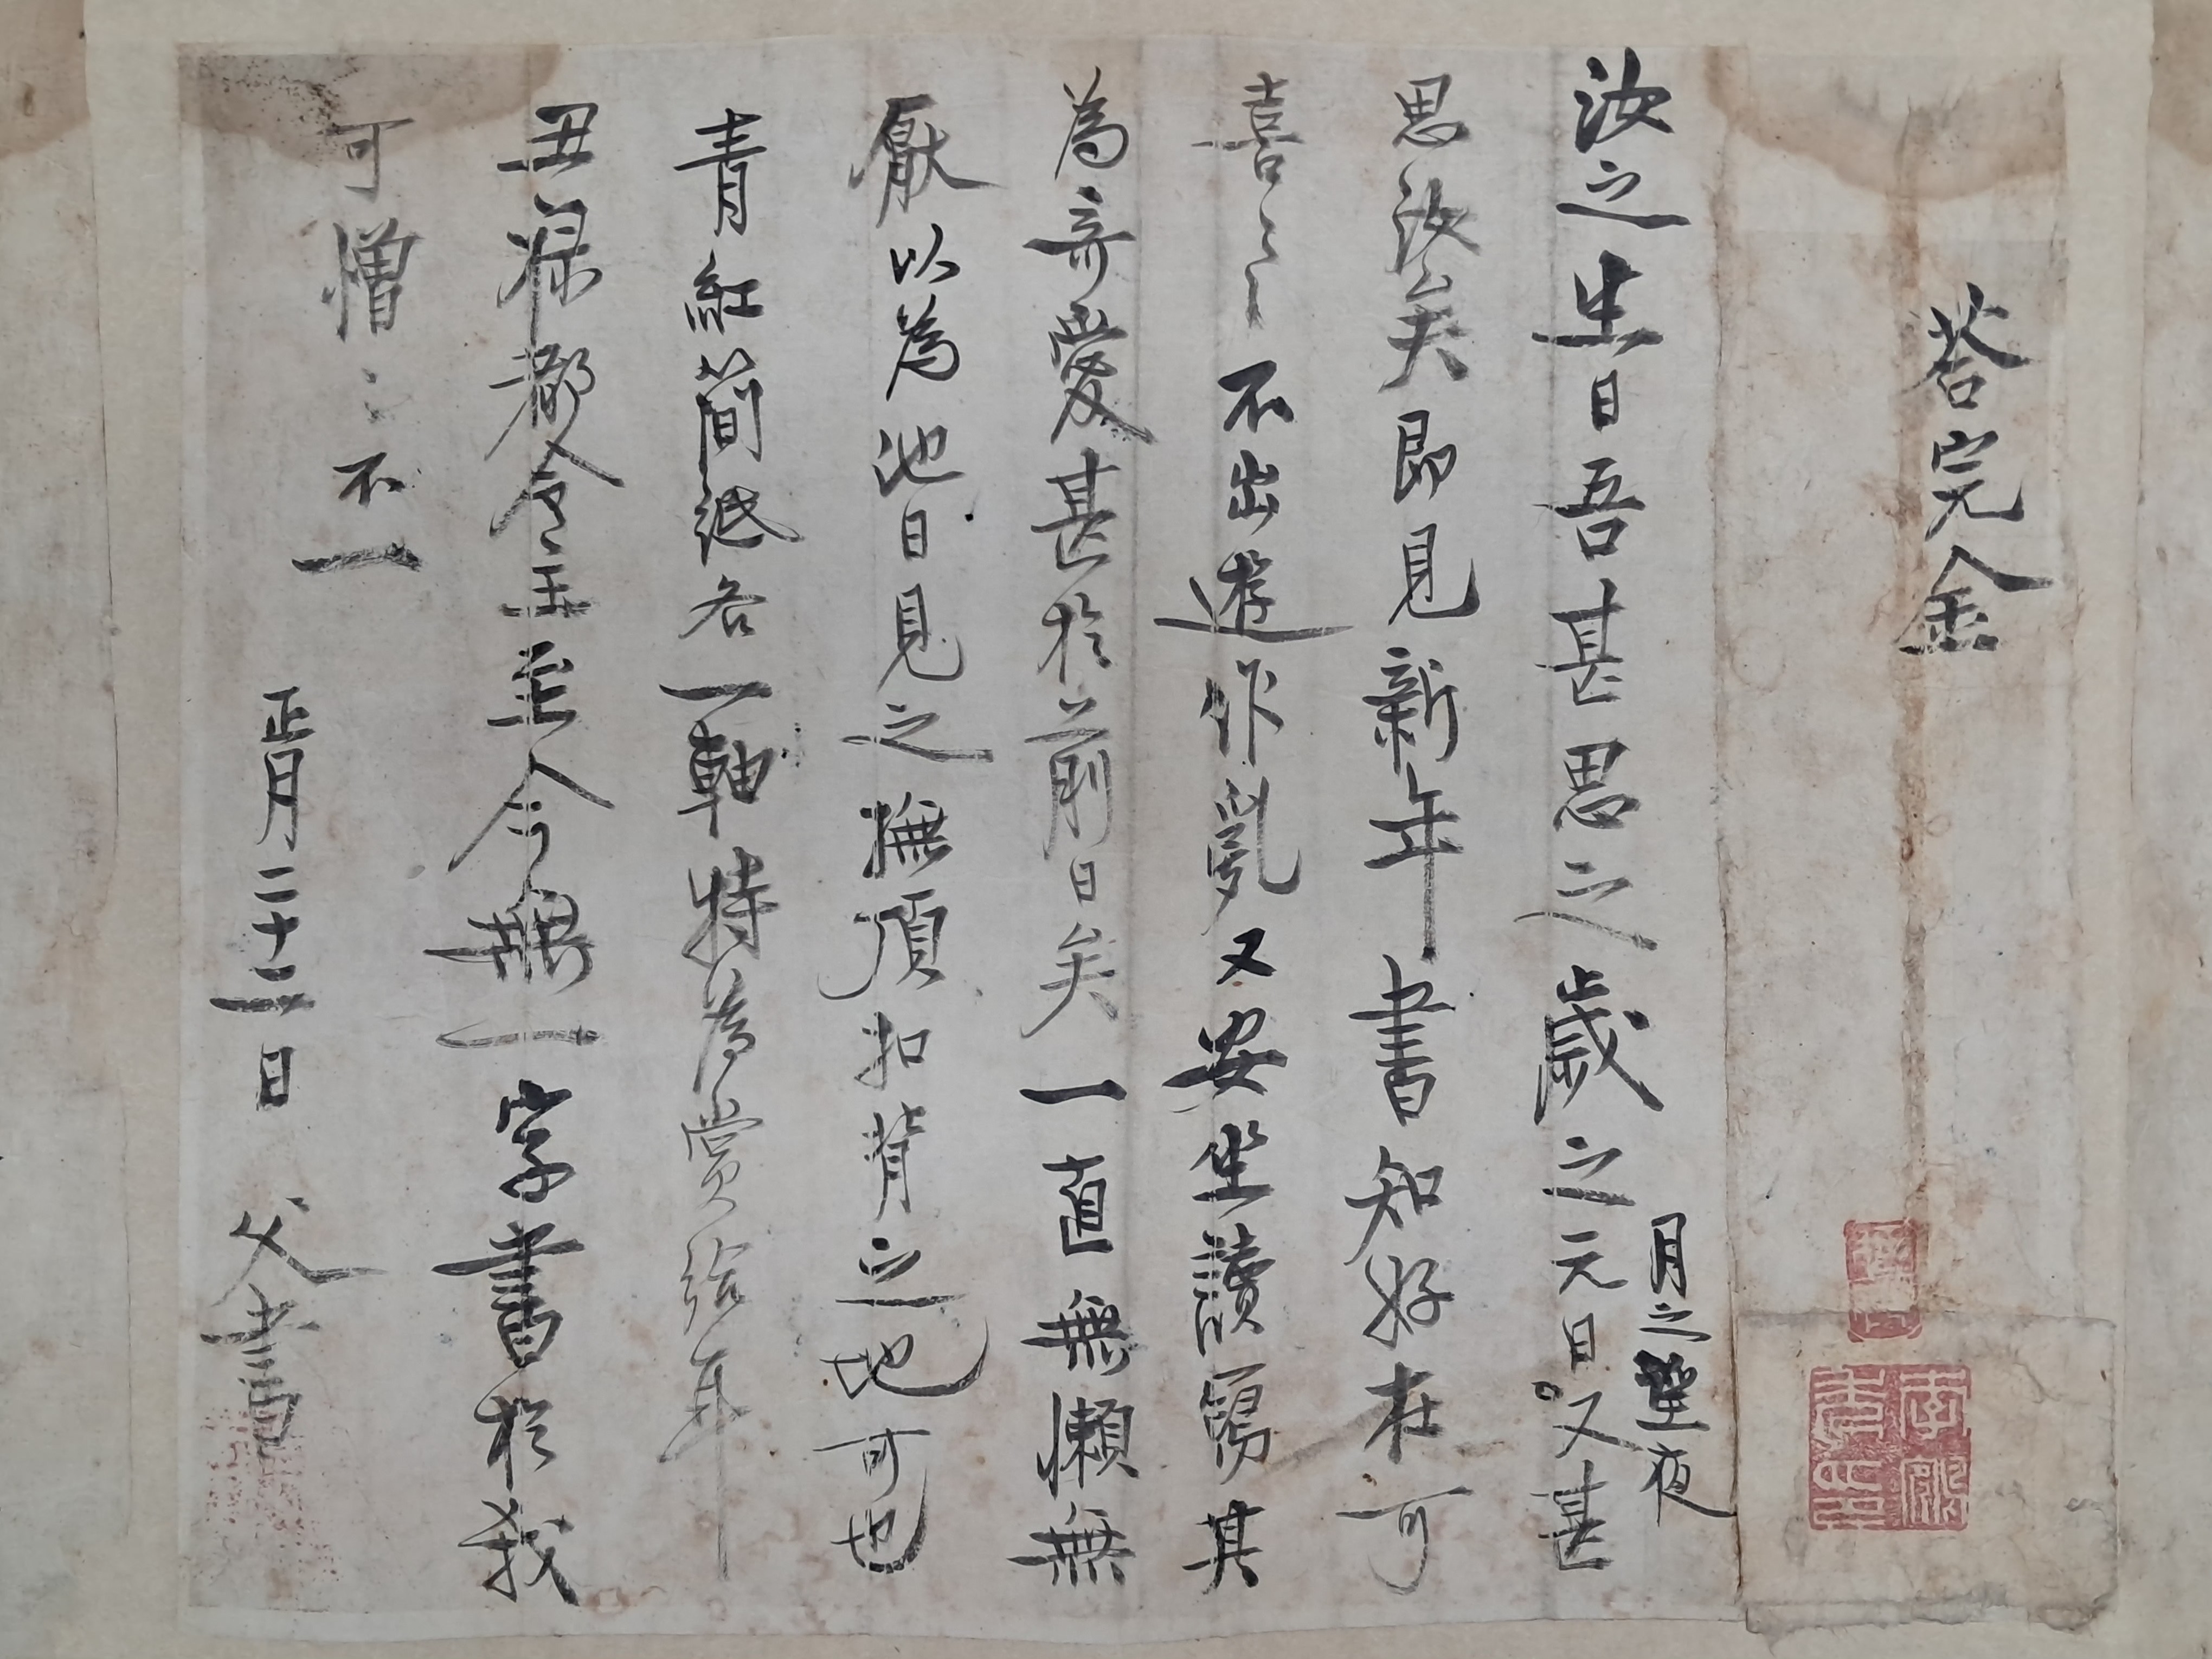 答完金
汝之生日吾甚思之歲之元日又甚
月之望夜
思汝矣即見新年書知好在可
喜〻〻不出遊作亂又安坐讀勇其
為奇愛甚於前日矣一直無懶無
厭以為他日見之撫頂扣背之地可也
青紅簡紙各一軸特為賞給耳
丑祿都令主至今無一字書於我
可憎〻不一
正月二十二日 父書